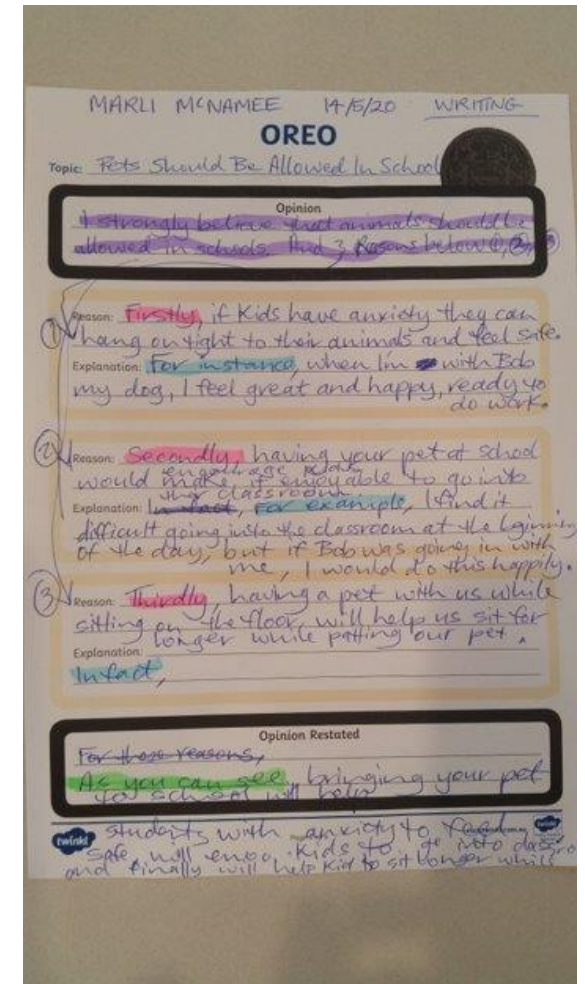 MARLI McNAMEE 14/5/20 WRITING
OREO
Topic: Pets Should Be Allowed In School
Opinion
I strongly believe that animals should be
allowed in schools. And 3 Reasons below ①, ②, ③
① Reason: Firstly, if kids have anxiety they can
hang on tight to their animals and feel safe.
Explanation: For instance, when I'm with Bob
my dog, I feel great and happy, ready to
do work.
② Reason: Secondly, having your pet at school
would make it enjoyable to go into
the classroom
Explanation: In fact, For example, I find it
difficult going into the classroom at the beginning
of the day, but if Bob was going in with
me, I would do this happily.
③ Reason: Thirdly, having a pet with us while
sitting on the floor, will help us sit for
longer while patting our pet.
Explanation:
In fact,
Opinion Restated
For those reasons,
As you can see, bringing your pet
to school will help
twinkl
students with anxiety to feel
safe, will kids to go into
and finally will help kid to sit longer